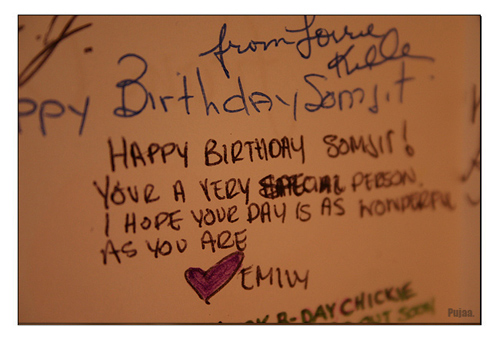 y.
from Lorrie
ppy Birthday Somsit.
HAPPY BIRTHDAY SOMSIT!
YOUR A VERY SPECIAL PERSON.
I HOPE YOUR DAY IS AS WONDERFUL
AS YOU ARE
EMILY
B-DAY CHICKIE
OUT SOON
Pujan